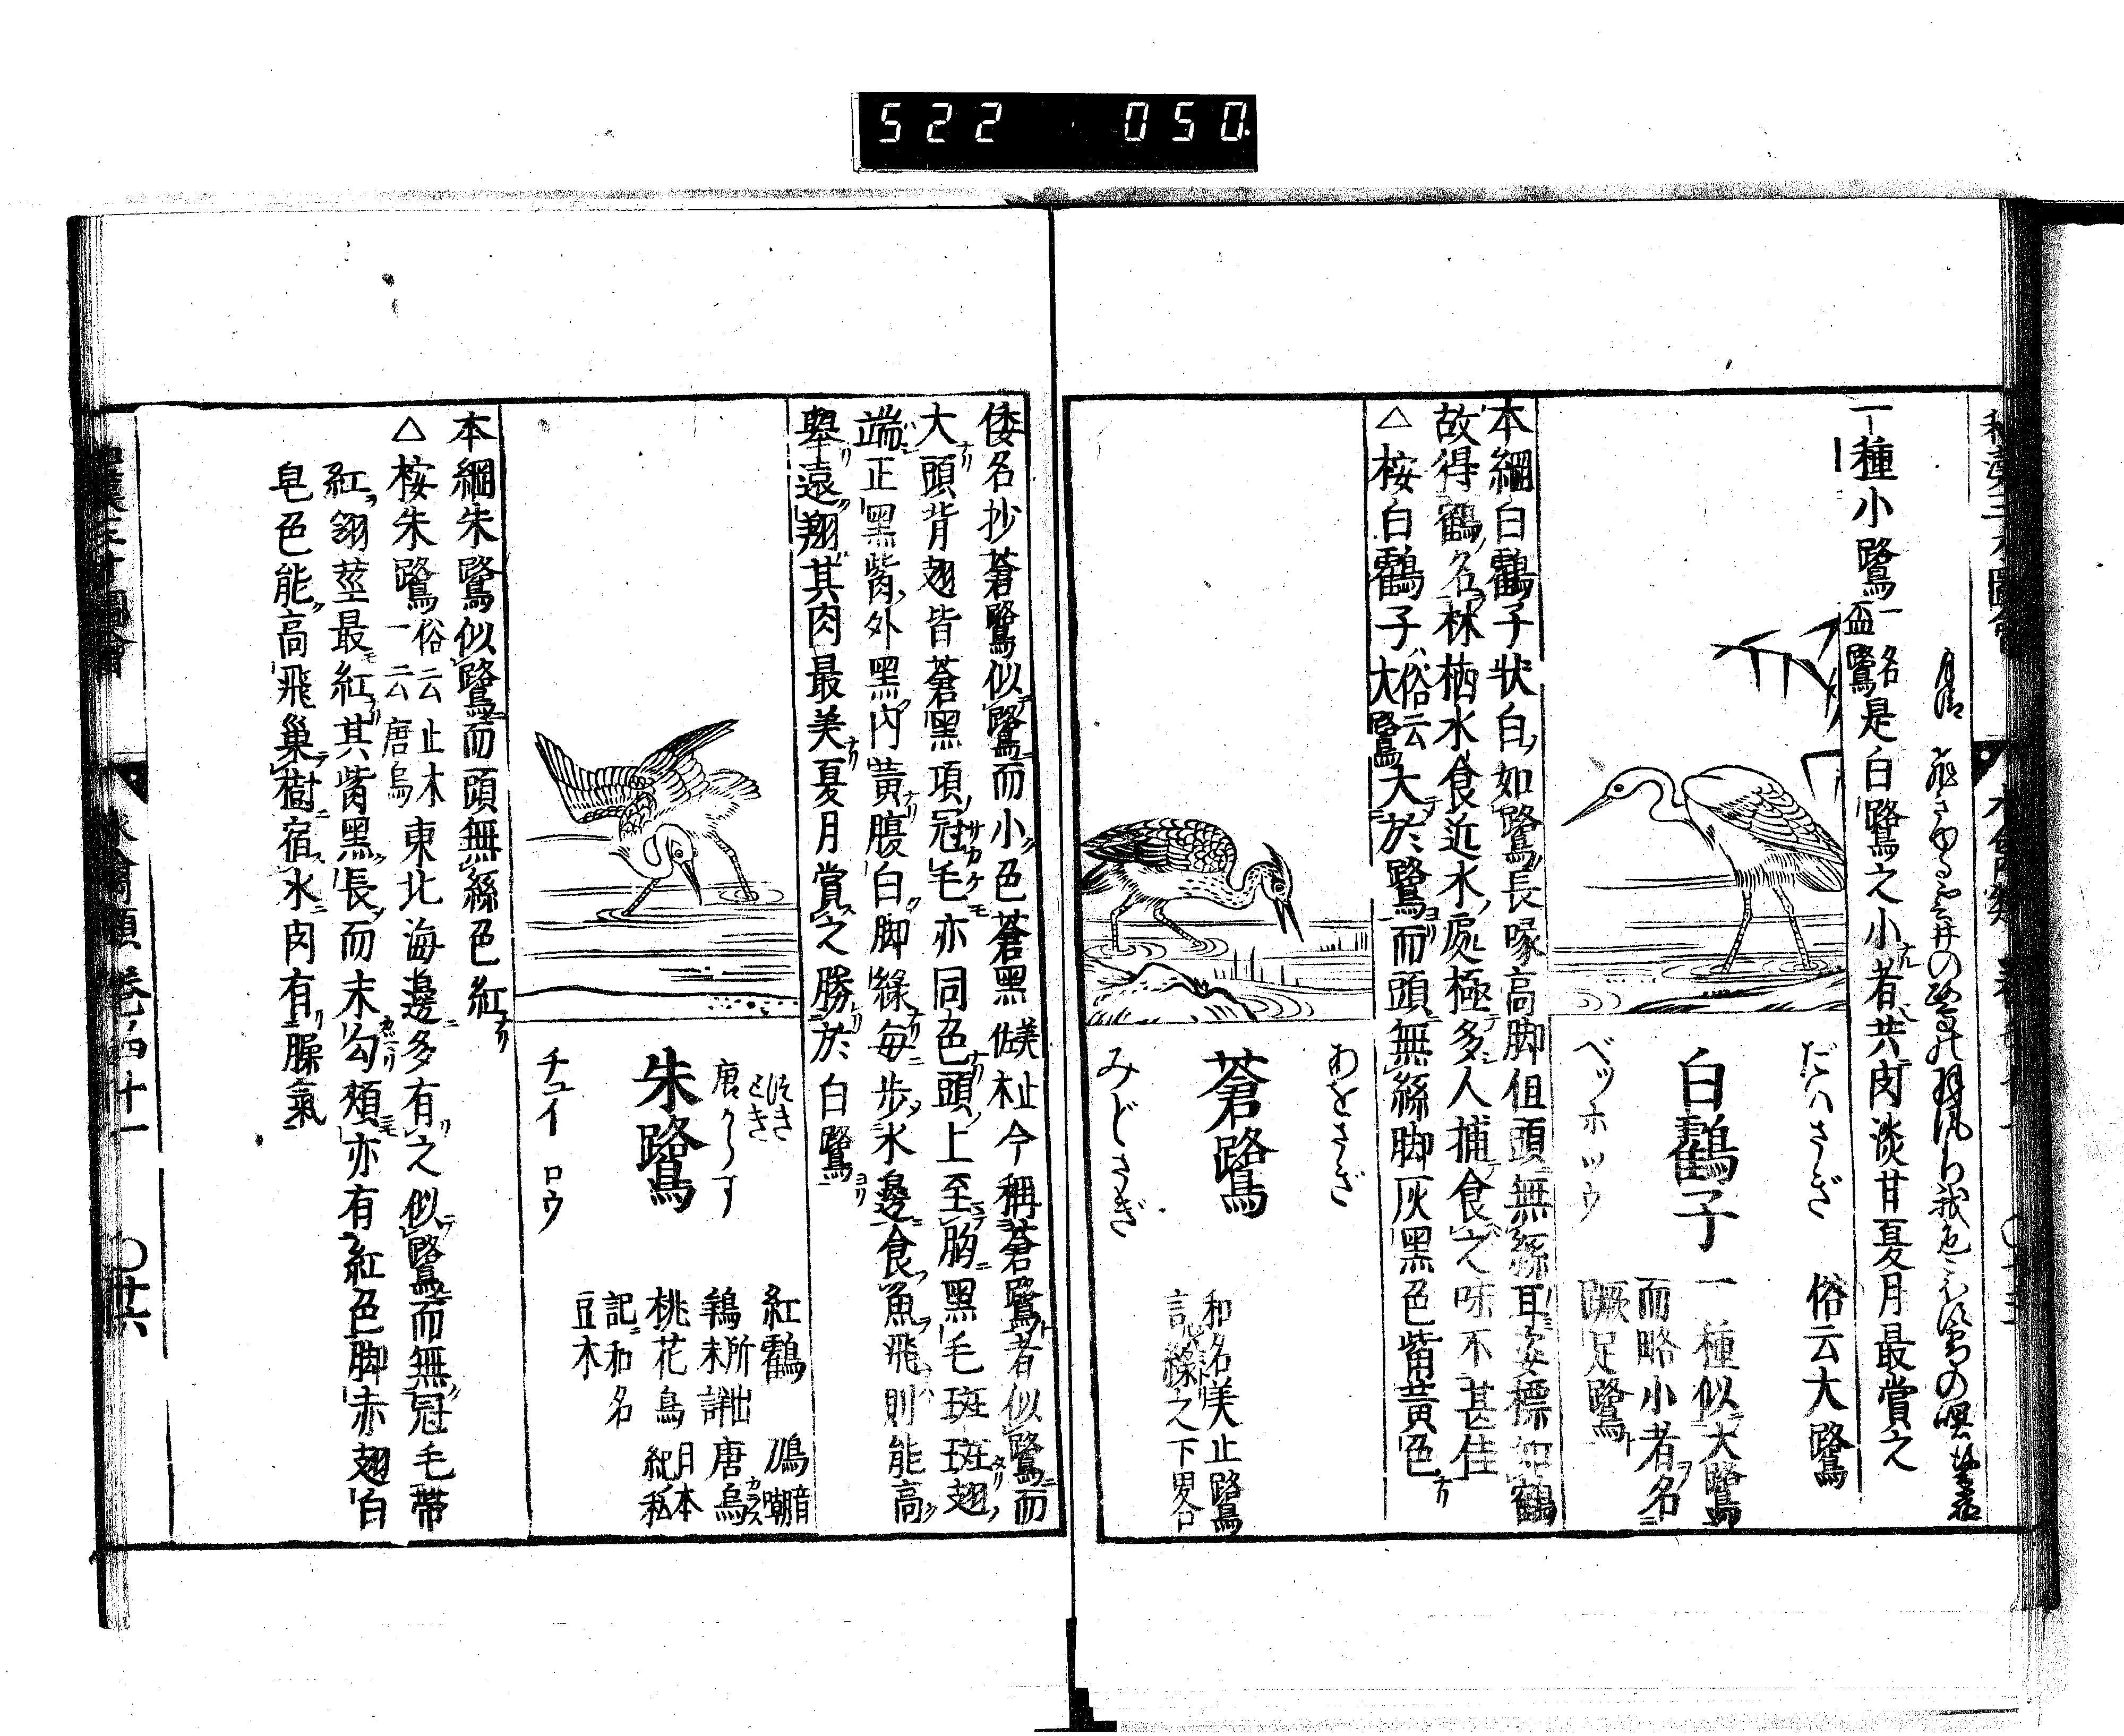 522 050
一種小鷺一名盃鷺是白鷺之小者共肉淡甘夏月最賞之
だいさぎ
俗云大鷺
白鶴子
ベツホツウ
一種似大鷺
而略小者名
㘝足鷺
本綱白鶴子狀白如鷺長喙高脚但頭無絲耳姿標如鶴
故得鶴名林栖水食近水處極多人捕食之味不甚佳
△桉白鶴子俗云大鷺大於鷺而頭無絲脚灰黑色觜黃色
あをさぎ
蒼鷺
みどさぎ
和名美止鷺
言綠之下畧
倭名抄蒼鷺似鷺而小色蒼黑美止佐木今稱蒼鷺者似鷺而
大頭背翅皆蒼黑項冠毛亦同色頭上至胸黑毛斑斑翅
端正黑觜外黑內黃腹白脚綠每步水邊食魚飛則能高
舉遠翔其肉最美夏月賞之勝於白鷺
つき
とき
唐がらす
朱鷺
チユイ ロウ
紅鶴 鴇音嘲
鵇所出未詳 唐烏
桃花鳥日本紀私
記和名
豆木
本綱朱鷺似鷺而頭無絲色紅
△桉朱鷺俗云止木一云唐烏東北海邊多有之似鷺而無冠毛帶
紅翎莖最紅其觜黑長而末勾頰亦有紅色脚赤翅白
皂色能高飛巢樹宿水肉有臊氣
和漢三才圖會
水禽類 卷四十一 〇廿六